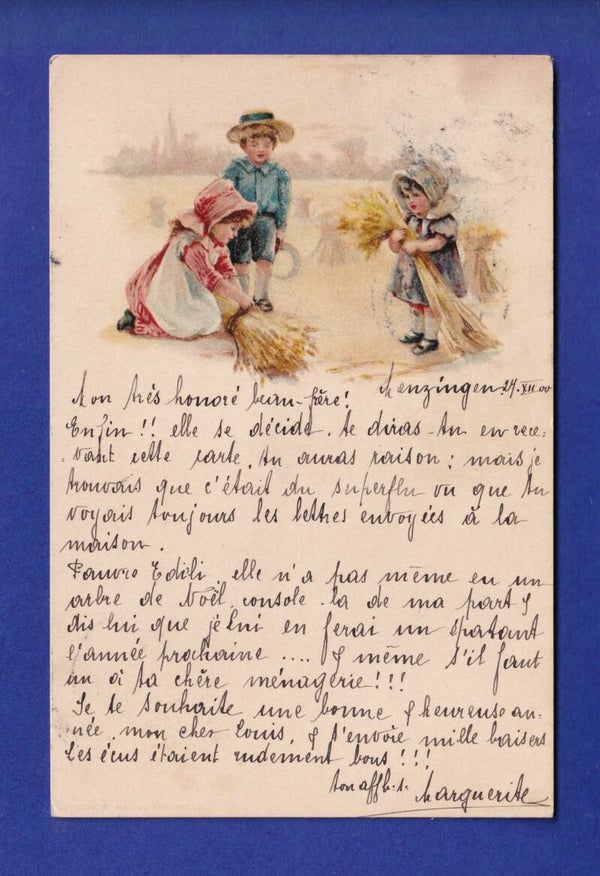 Menzingen 27.XII.00
Mon très honoré beau-frère!
Enfin!! elle se décide, te diras-tu en rece-
vant cette carte, tu auras raison; mais je
trouvais que c'était du superflu vu que tu
voyais toujours les lettres envoyées à la
maison.
Pauvre Edili, elle n'a pas même eu un
arbre de Noël, console-la de ma part &
dis lui que je lui en ferai un épatant
l'année prochaine .... & même s'il faut
un à ta chère ménagerie!!!
Je te souhaite une bonne & heureuse an-
née, mon cher Louis, & t'envoie mille baisers
Les écus étaient rudement bons!!!
ton aff. b.-s.
Marguerite